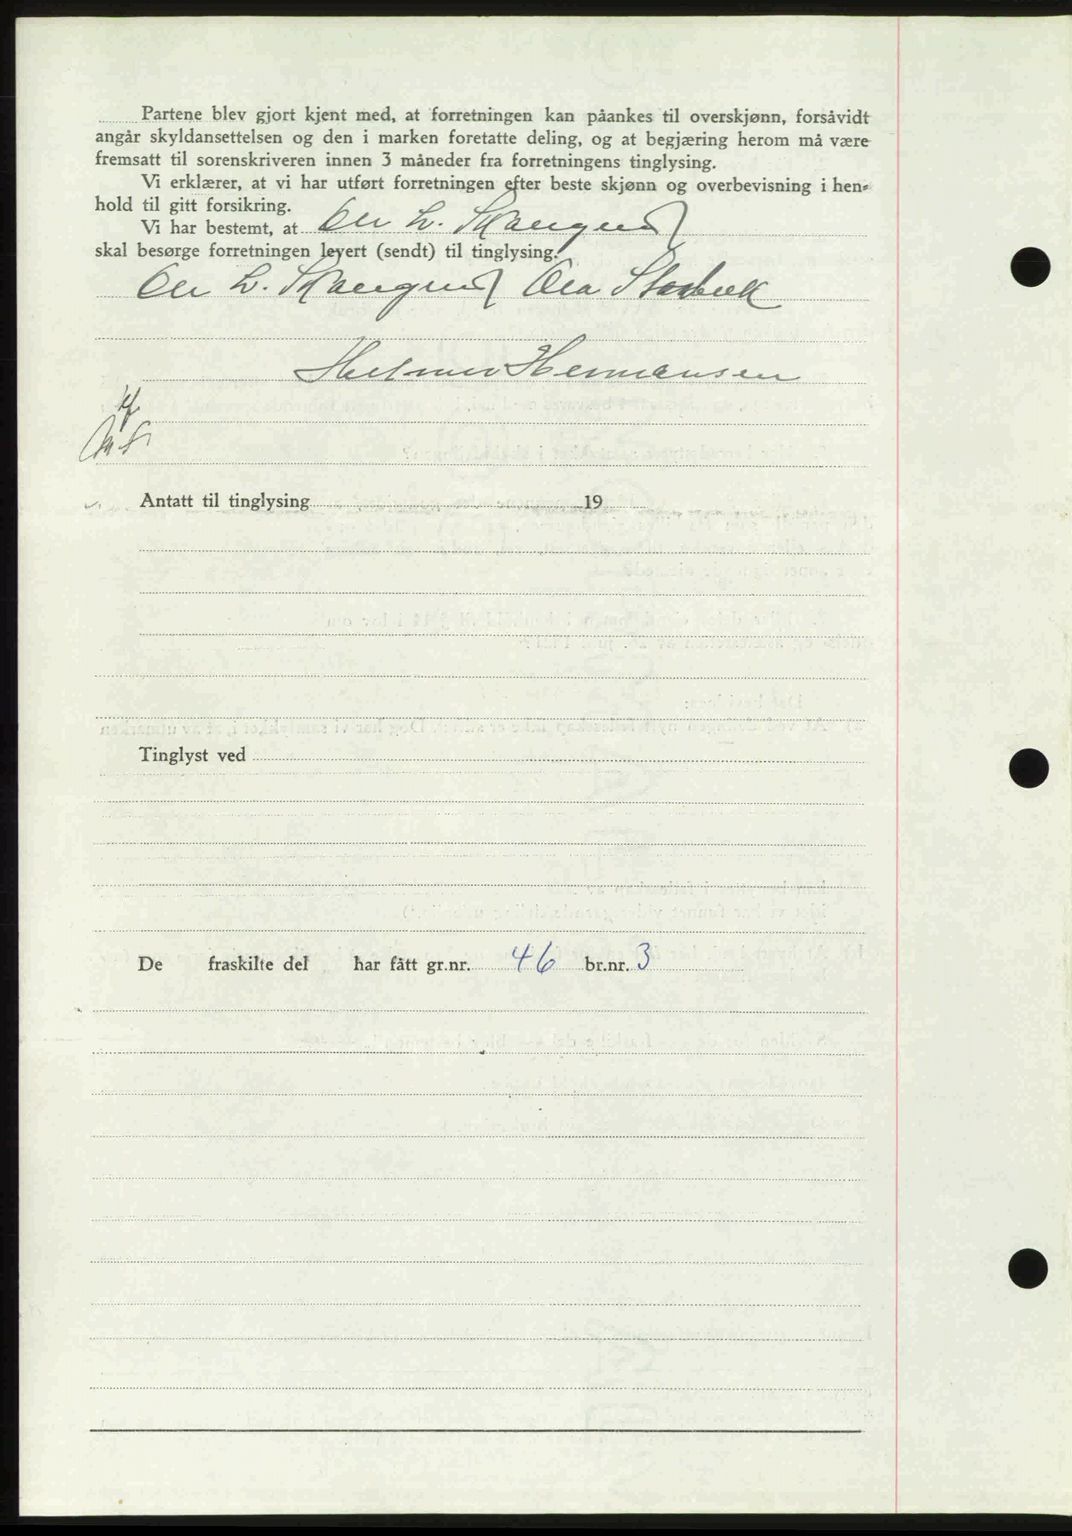 Partene blev gjort kjent med, at forretningen kan påankes til overskjønn, forsåvidt
angår skyldansettelsen og den i marken foretatte deling, og at begjæring herom må være
fremsatt til sorenskriveren innen 3 måneder fra forretningens tinglysing.
Vi erklærer, at vi har utført forretningen efter beste skjønn og overbevisning i hen-
hold til gitt forsikring.
Vi har bestemt, at Ole L. Skangrud
skal besørge forretningen levert (sendt) til tinglysing.
Ole L. Skangrud Ola Storbæk
Helmer Hermansen
Antatt til tinglysing 19
Tinglyst ved
De fraskilte del har fått gr.nr. 46 br.nr. 3